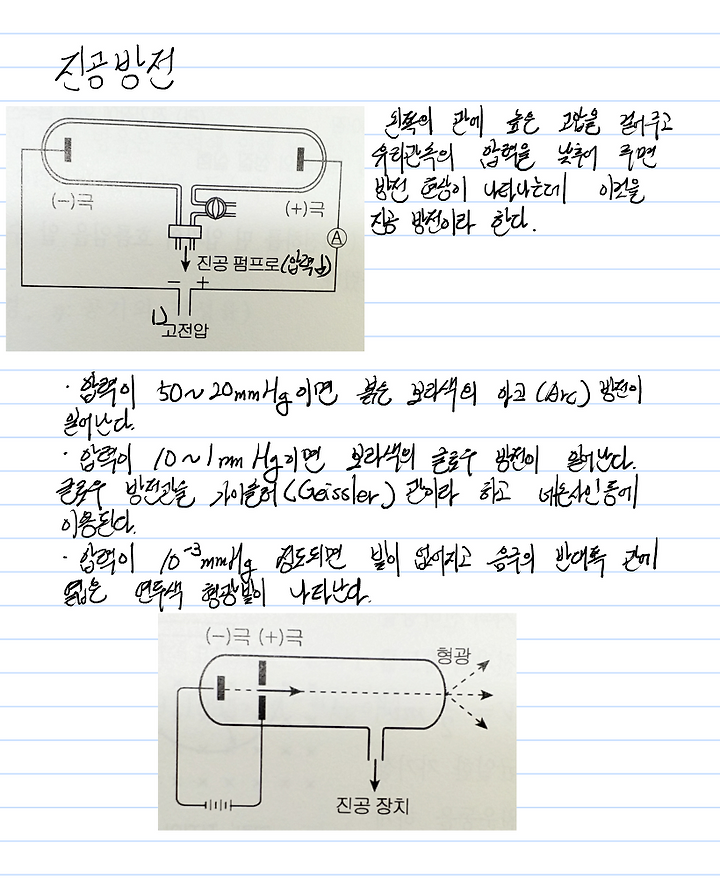 진공방전
왼쪽의 관에 높은 고압을 걸어주고
유리관속의 압력을 낮추어 주면
방전 현상이 나타나는데 이것을
진공 방전이라 한다.
(-)극
(+)극
A
진공 펌프로(압력↓)
- +
고전압
· 압력이 50~20mmHg이면 붉은 보라색의 아크(Arc) 방전이
일어난다.
· 압력이 10~1mmHg이면 보라색의 글로우 방전이 일어난다.
글로우 방전관을 가이슬러(Geissler) 관이라 하고 네온사인등에
이용된다.
· 압력이 10⁻³mmHg 정도되면 빛이 없어지고 음극의 반대쪽 관에
엷은 연두색 형광빛이 나타난다.
(-)극 (+)극
형광
진공 장치